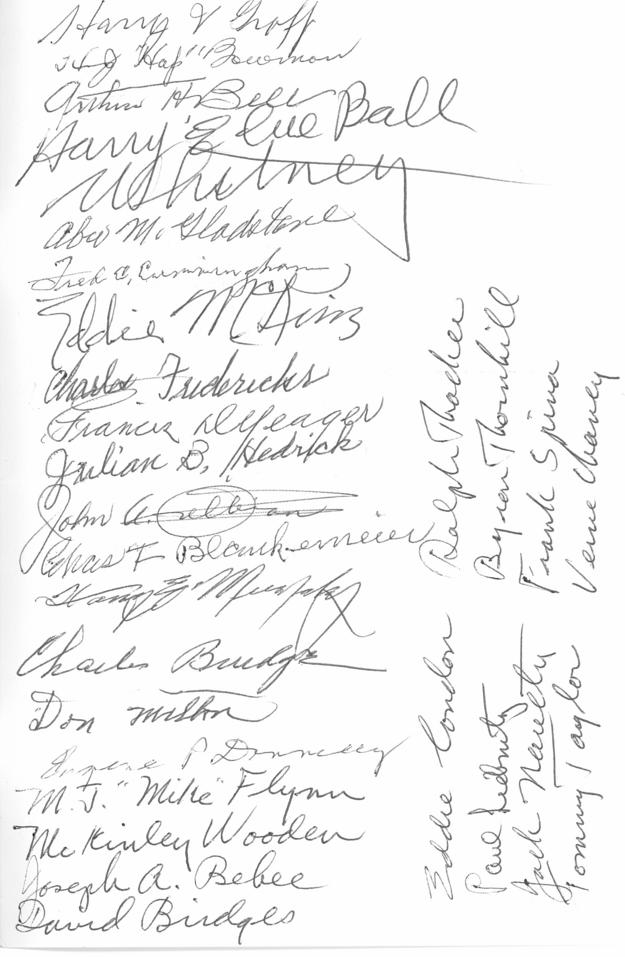 Harry V Groff
H J "Hap" Bowman
Arthur H. Bell
Harry E Cue Ball
Whitney
Abw M. Gladstone
Fred C. Cunningham
Eddie McGinnis
Charles Fredericks
Francis D Yeager
Julian B. Hedrick
John A.
Chas F Blankemeier
Harry E Murphy
Charles Bridge
Don Milton
Eugene P Donnelly
M.J. "Mike" Flynn
McKinley Wooden
Joseph A. Bebee
David Bridges
Ralph Thacher
Byron Thornhill
Frank Spina
Verne Chaney
Eddie London
Paul
Jack Naulty
Tommy Taylor